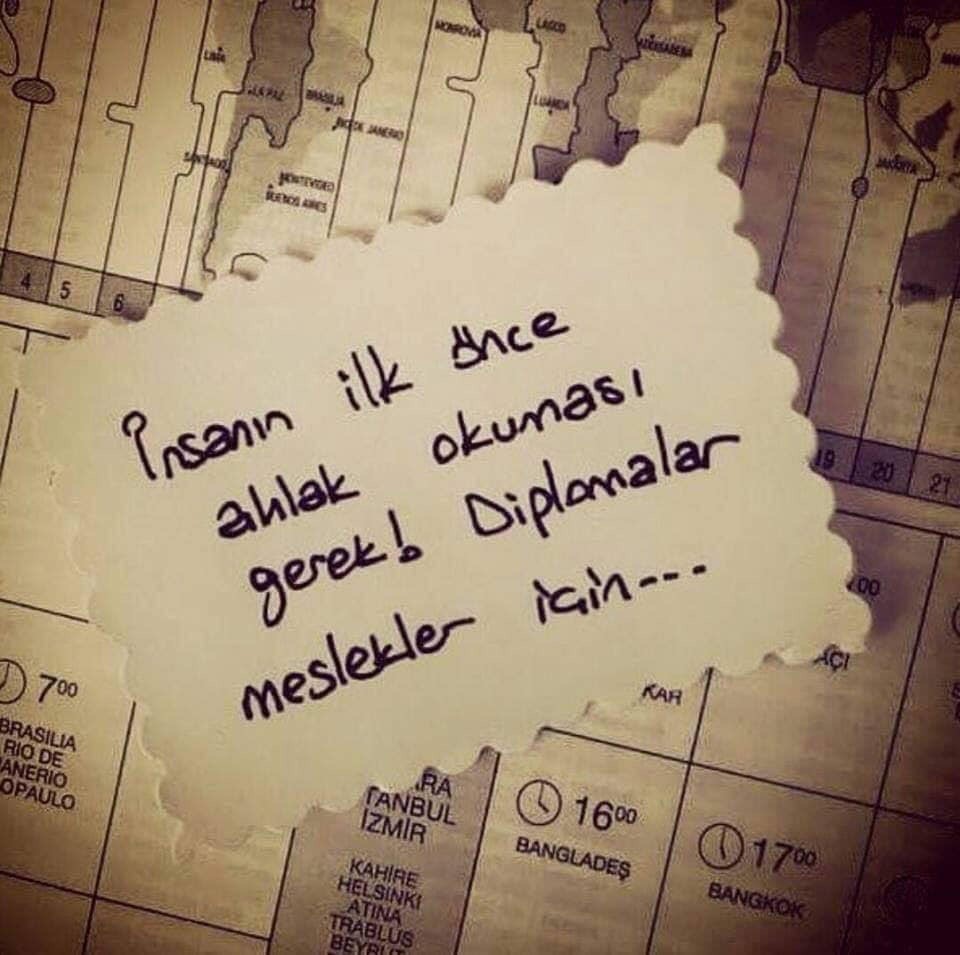 MONROVIA
LAGOS
ADDISABEBA
LIMA
LA PAZ
BRASILIA
LUANDA
RIO DE JANERIO
SANTIAGO
JAKARTA
MONTEVIDEO
BUENOS AIRES
4 5 6
İnsanın ilk önce
ahlak okuması
gerek! Diplomalar
meslekler için---
19 20 21
00
AÇI
KAR
700
BRASILIA
RIO DE
ANERIO
OPAULO
ARA
TANBUL
İZMİR
KAHİRE
HELSİNKİ
ATİNA
TRABLUS
BEYRUT
1600
BANGLADEŞ
1700
BANGKOK